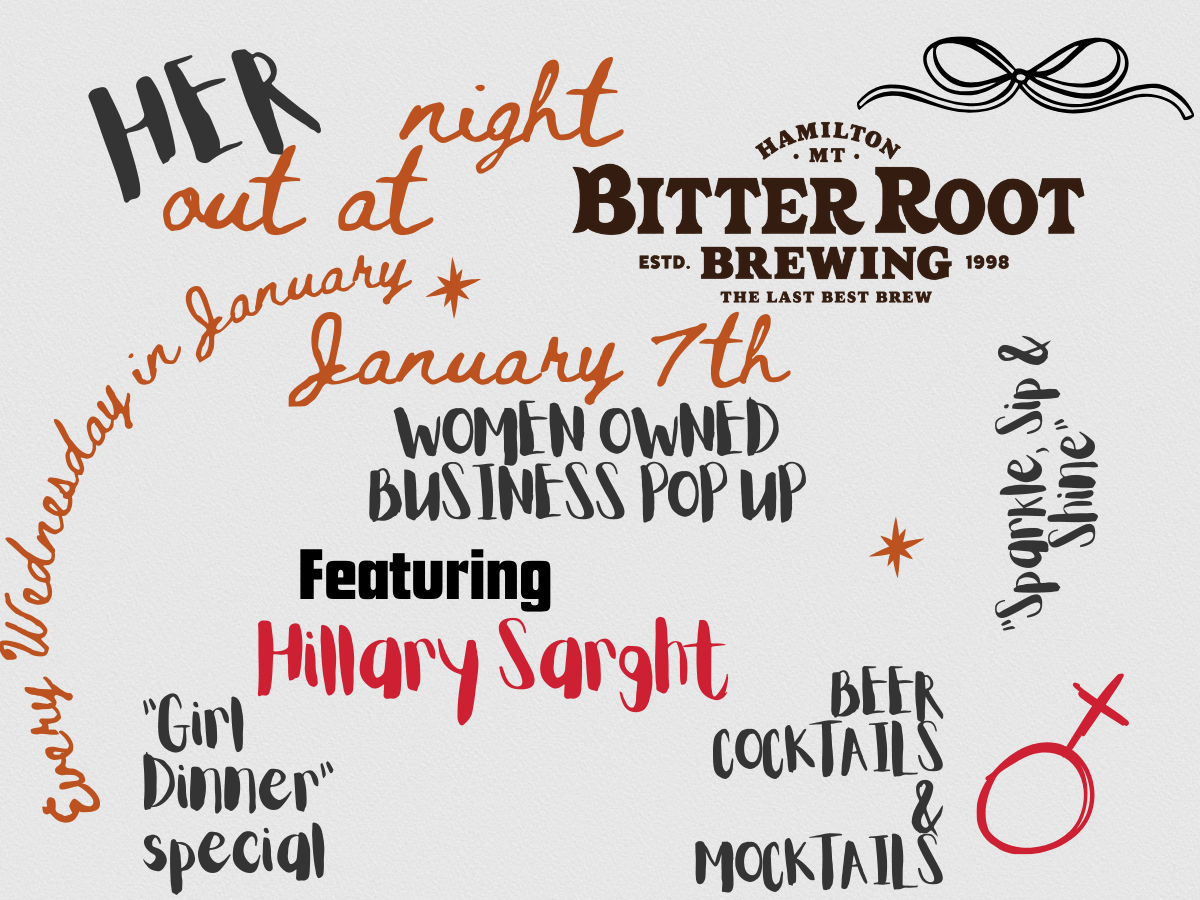 HER night
out at
HAMILTON
· MT ·
BITTER ROOT
ESTD. BREWING 1998
THE LAST BEST BREW
Every Wednesday in January
January 7th
WOMEN OWNED
BUSINESS POP UP
"Sparkle, Sip &
Shine"
Featuring
Hillary Sarght
"Girl
Dinner"
special
BEER
COCKTAILS
&
MOCKTAILS